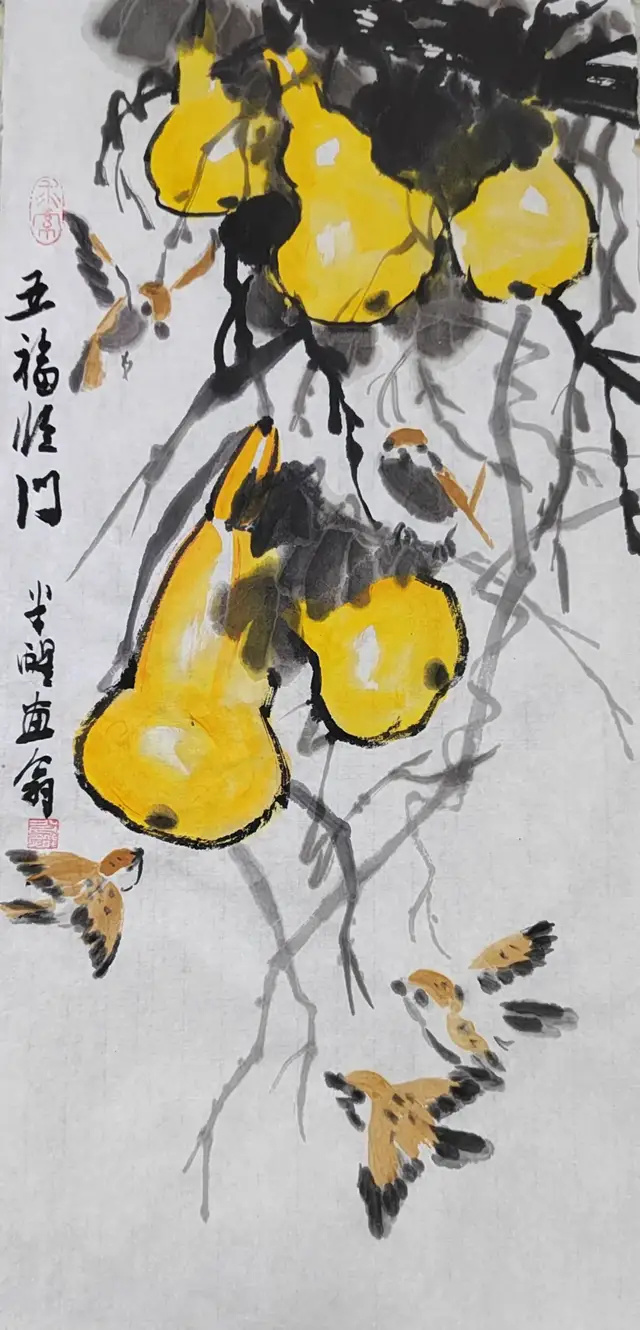 五福临门 半醒画翁